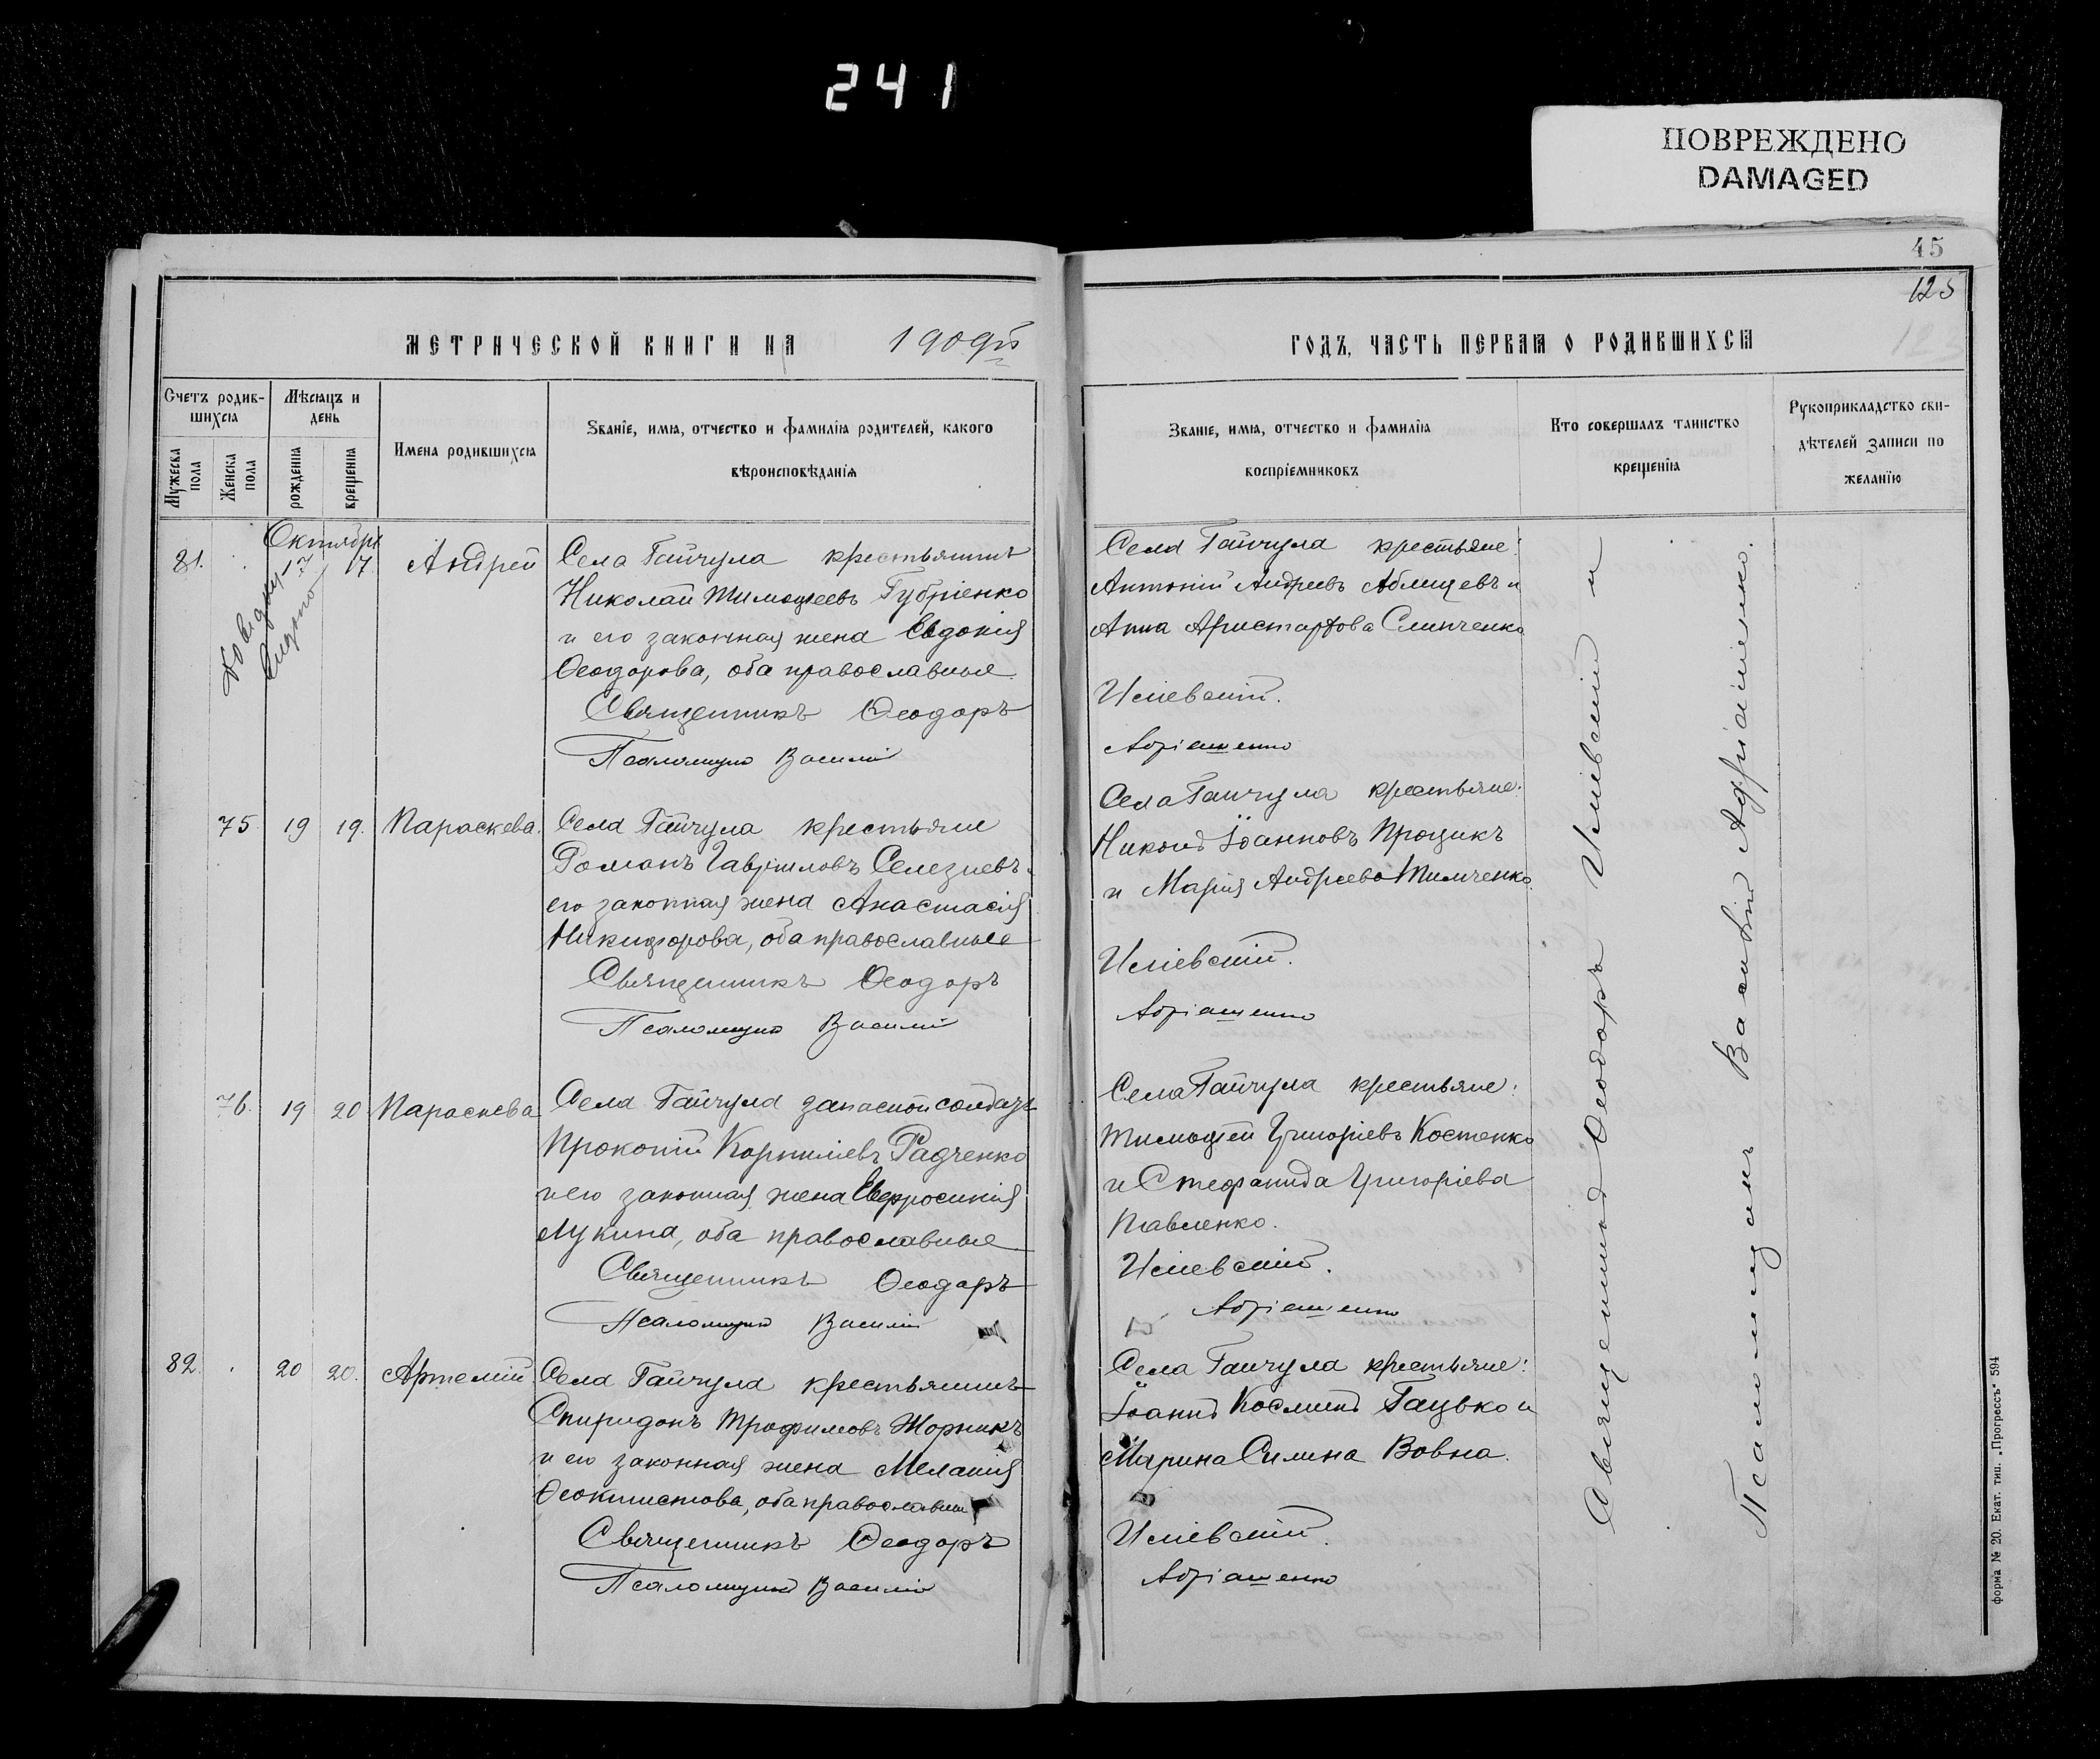 241
ПОВРЕЖДЕНО
DAMAGED
45
125
МЕТРИЧЕСКОЙ КНИГИ НА 1909й
ГОДЪ, ЧАСТЬ ПЕРВАЯ О РОДИВШИХСЯ
Счетъ родив-
шихся
Мужеска пола
Женска пола
Мѣсяцъ и
день
рожденія
крещенія
Имена родившихся
Званіе, имя, отчество и фамилія родителей, какого
вѣроисповѣданія
Званіе, имя, отчество и фамилія
воспріемниковъ
Кто совершалъ таинство
крещенія
Рукоприкладство сви-
дѣтелей записи по
желанію
Октябрь
81. 17 17. Андрей
Села Гайчула крестьянинъ
Николай Тимоѳеевъ Губріенко
и его законная жена Евдокія
Ѳеодорова, оба православные.
Священникъ Ѳеодоръ
Псаломщикъ Василій
Села Гайчула крестьяне:
Антоній Андреевъ Аблицевъ и
Анна Аристархова Слинченко
Исіевскій.
Адріашенко
75. 19 19. Параскева.
Села Гайчула крестьяне
Романъ Гавріиловъ Селезневъ
его законная жена Анастасія
Никифорова, оба православные
Священникъ Ѳеодоръ
Псаломщикъ Василій
Села Гайчула крестьяне:
Никонъ Іоанновъ Процикъ
и Марія Андреева Тимченко
Исіевскій.
Адріашенко
76. 19 20 Параскева
Села Гайчула запасной солдатъ
Прокопій Корниліевъ Радченко
и его законная жена Евфросинія
Лукина, оба православные
Священникъ Ѳеодоръ
Псаломщикъ Василій
Села Гайчула крестьяне:
Тимоѳей Григоріевъ Костенко
и Стефанида Григоріева
Павленко.
Исіевскій.
Адріашенко
82. 20 20. Артемій
Села Гайчула крестьянинъ
Спиридонъ Трофимовъ Жорникъ
и его законная жена Меланія
Ѳеоктистова, оба православн
Священникъ Ѳеодоръ
Псаломщикъ Василій
Села Гайчула крестьяне:
Іоаннъ Косминъ Гацько и
Марина Силина Вовна.
Исіевскій.
Адріашенко
Священникъ Ѳеодоръ Исіевскій и
Псаломщикъ Василій Адріашенко.
форма № 20. Екат. тип. „Прогрессъ“ 594